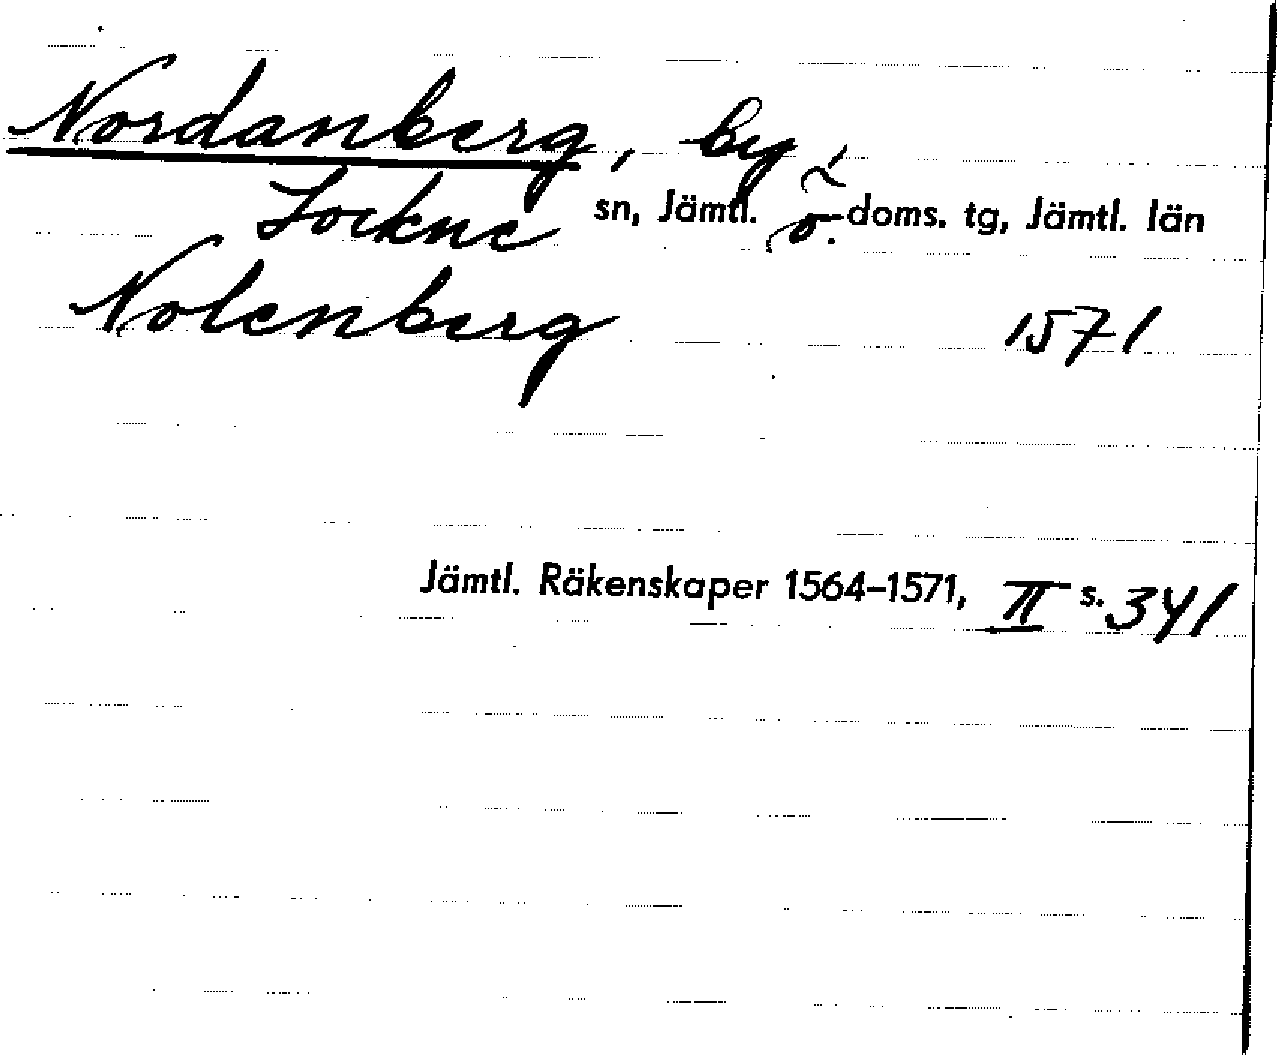 Nordanberg, by,
Lockne sn, Jämtl. ö. doms. tg, Jämtl. län
Nolenberg 1571
Jämtl. Räkenskaper 1564–1571, II s. 341